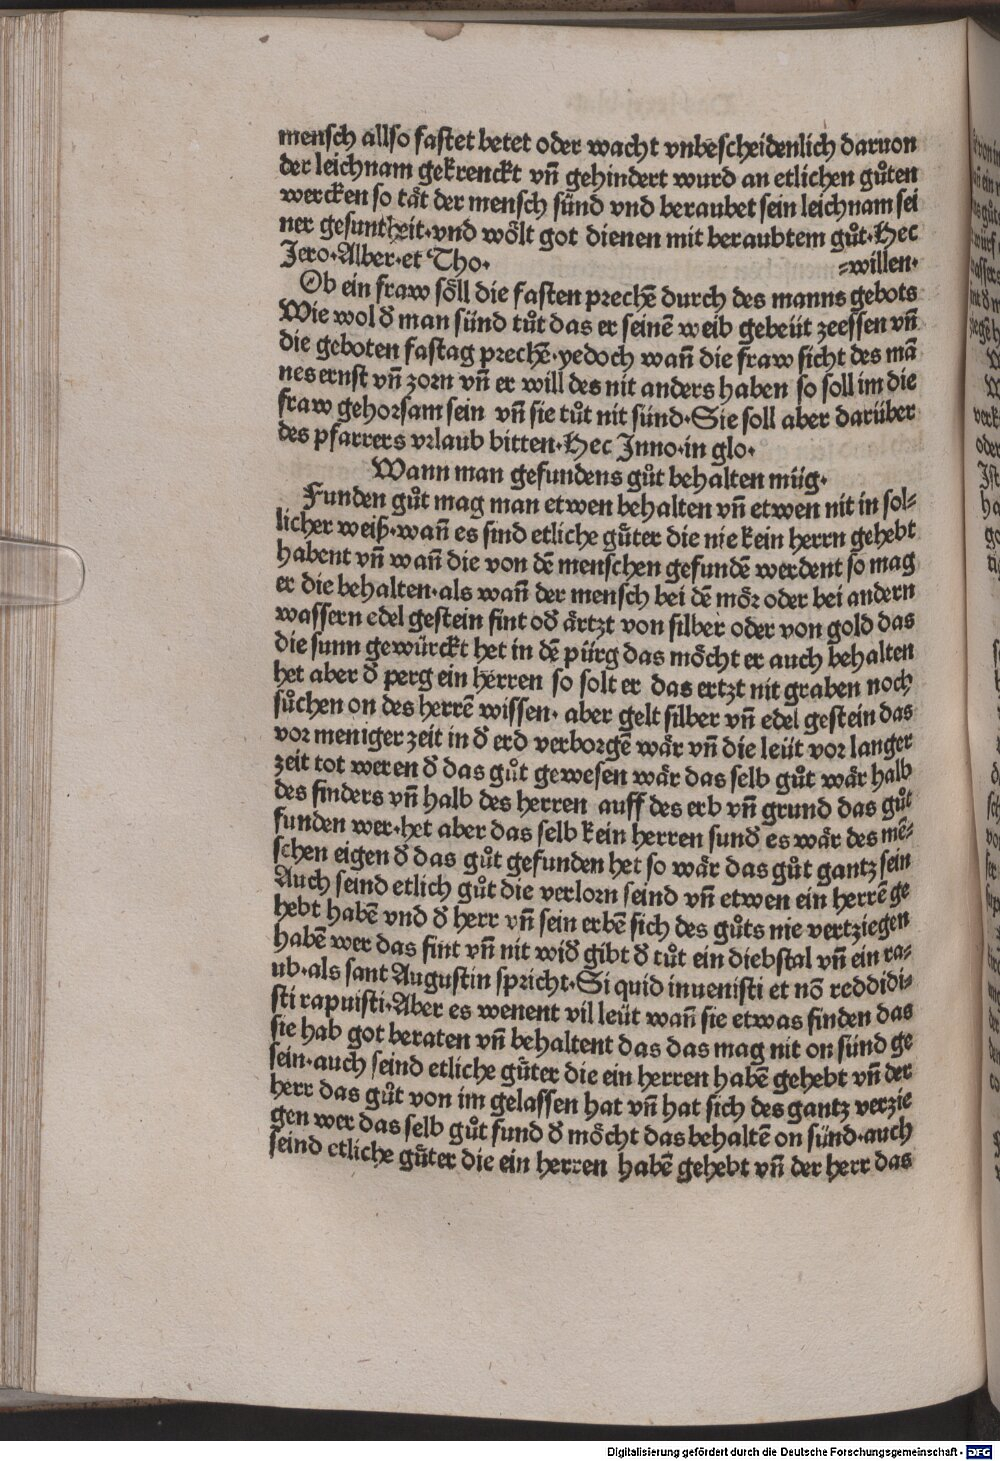 mensch allso fastet betet oder wacht vnbescheidenlich daruon
der leichnam gekrenckt vñ gehindert wurd an etlichen gůten
wercken so tät der mensch sünd vnd beraubet sein leichnam sei
ner gesuntheit·vnd wölt got dienen mit beraubtem gůt·Hec
Jero·Alber·et Tho· =willen·
Ob ein fraw söll die fasten prechẽ durch des manns gebots
Wie wol đ man sünd tůt das er seinẽ weib gebeüt zeessen vñ
die geboten fastag prechẽ·yedoch wañ die fraw sicht des mã
nes ernst vñ zorn vñ er will des nit anders haben so soll im die
fraw gehorsam sein vñ sie tůt nit sünd·Sie soll aber darüber
des pfarrers vrlaub bitten·Hec Jnno·in glo·
Wann man gefundens gůt behalten müg·
Funden gůt mag man etwen behalten vñ etwen nit in sol=
licher weiß·wañ es sind etliche gůter die nie kein herrn gehebt
habent vñ wañ die von dẽ menschen gefundẽ werdent so mag
er die behalten·als wañ der mensch bei dẽ mör oder bei andern
wassern edel gestein fint ođ ärtzt von silber oder von gold das
die sunn gewürckt het in dẽ pürg das möcht er auch behalten
het aber đ perg ein herren so solt er das ertzt nit graben noch
sůchen on des herrẽ wissen· aber gelt silber vñ edel gestein das
vor meniger zeit in đ erd verborgẽ wär vñ die leüt vor langer
zeit tot weren đ das gůt gewesen wär das selb gůt wär halb
des finders vñ halb des herren auff des erb vñ grund das gůt
funden wer·het aber das selb kein herren sunđ es wär des mẽ=
schen eigen đ das gůt gefunden het so wär das gůt gantz sein
Auch seind etlich gůt die verlorn seind vñ etwen ein herrẽ ge
hebt habẽ vnd đ herr vñ sein erbẽ sich des gůts nie vertziegen
habẽ wer das fint vñ nit wiđ gibt đ tůt ein diebstal vñ ein ra=
ub·als sant Augustin spricht·Si quid inuenisti et nõ reddidi=
sti rapuisti·Aber es wenent vil leüt wañ sie etwas finden das
sie hab got beraten vñ behaltent das das mag nit on sünd ge
sein·auch seind etliche gůter die ein herren habẽ gehebt vñ der
herr das gůt von im gelassen hat vñ hat sich des gantz verzie
gen wer das selb gůt fund đ möcht das behaltẽ on sünd·auch
seind etliche gůter die ein herren habẽ gehebt vñ der herr das
Digitalisierung gefördert durch die Deutsche Forschungsgemeinschaft - DFG